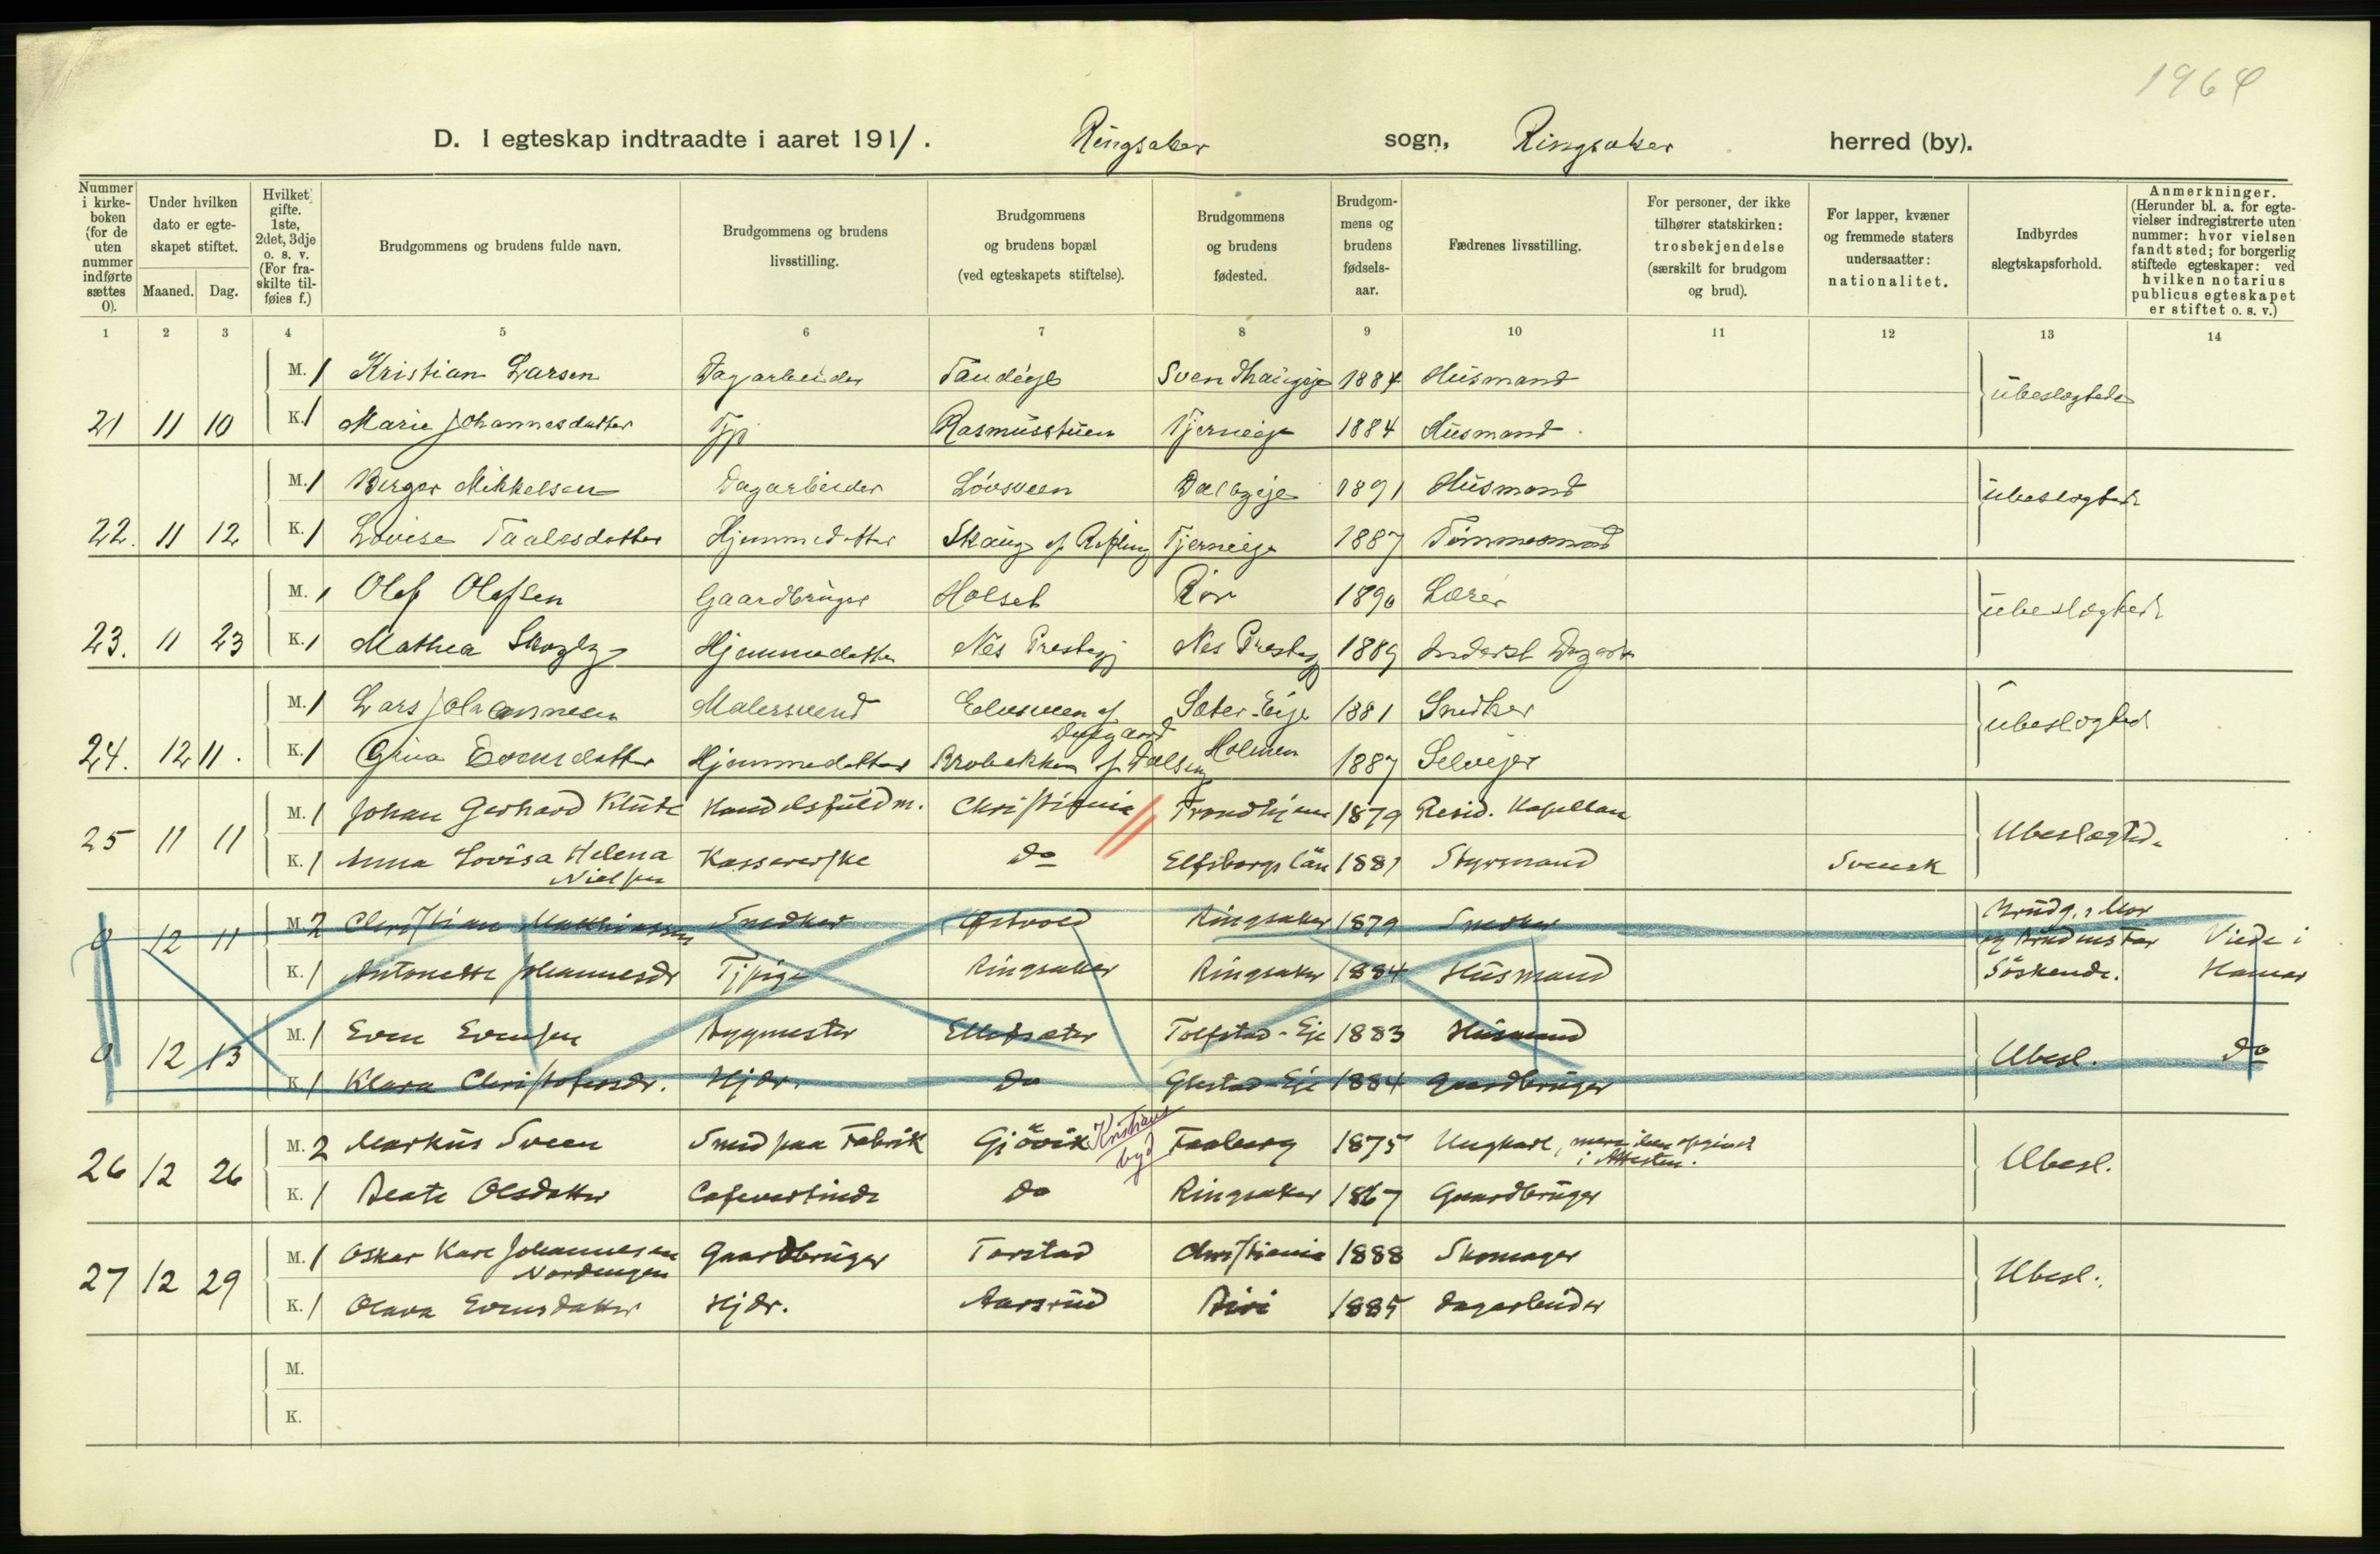 1964
D. I egteskap indtraadte i aaret 1911. Ringsaker sogn, Ringsaker herred (by).
Nummer i kirke-boken (for de uten nummer indførte sættes 0).
Under hvilken dato er egte-skapet stiftet.
Maaned. Dag.
Hvilket gifte. 1ste, 2det, 3dje o. s. v. (For fra-skilte til-føies f.)
Brudgommens og brudens fulde navn.
Brudgommens og brudens livsstilling.
Brudgommens og brudens bopæl (ved egteskapets stiftelse).
Brudgommens og brudens fødested.
Brudgom-mens og brudens fødsels-aar.
Fædrenes livsstilling.
For personer, der ikke tilhører statskirken: trosbekjendelse (særskilt for brudgom og brud).
For lapper, kvæner og fremmede staters undersaatter: nationalitet.
Indbyrdes slegtskapsforhold.
Anmerkninger. (Herunder bl. a. for egte-vielser indregistrerte uten nummer: hvor vielsen fandt sted; for borgerlig stiftede egteskaper: ved hvilken notarius publicus egteskapet er stiftet o. s. v.)
1 2 3 4 5 6 7 8 9 10 11 12 13 14
M. 1 Kristian Larsen Dagarbeider 1884 Husmand ubeslegtede
21 11 10 K. 1 Marie Johannesdatter Tjp Rasmusstuen Tjerneeje 1884 Husmand
M. 1 Birger Mikkelsen Dagarbeider Lövsveen 1891 Husmand ubeslegtede
22. 11 12 K. 1 Lovise Taalesdatter Hjemmedatter Skaug Tjerneeje 1887 Tömmermand
M. 1 Olef Olefsen Gaardbruger Holset Rör 1890 Lærer ubeslegtede
23. 11 23 K. 1 Mathea Skogly Hjemmedatter Nes Prestegj Nes Prestegj 1889
M. 1 Lars Johannesen Malersvend Sæter-Eije 1881 Snedker ubeslegtede
24. 12 11. K. 1 Gina Evensdatter Hjemmedatter Brobakken Holmen 1887 Selveier
M. 1 Johan Gerhard Klüte Handelsfuldm. Christiania Trondhjem 1879 Resid. Kapellan
25 11 11 Ubeslægted.
K. 1 Anna Lovisa Helena Nielsen Kassererske do Elfsborgs län 1881 Styrmand Svensk
0 12 11 M. 2 Christian Mathiassen Snedker Østvold Ringsaker 1879 Snedker Brudg.s Mor og Brudens Far Söskende. Viede i Hamar
K. 1 Antonette Johannesdr Tjpige Ringsaker Ringsaker 1884 Husmand
0 12 13 M. 1 Even Evensen Bygmester Ellefsæter Tolfstad-Eje 1883 Husmand Ubesl. do
K. 1 Klara Christofersdr. Hjdr. do Glestad-Eje 1884 Gaardbruger
26 12 26 M. 2 Markus Sveen Smed paa Fabrik Gjövik Kristians Faaberg 1875 Ungkarl, mere ikke opgivet i Attesten. Ubesl.
K. 1 Beate Olsdatter Cafevertinde do Ringsaker 1867 Gaardbruger
27 12 29 M. 1 Oskar Karl Johannesen Nordengen Gaardbruger Torstad Christiania 1888 Skomager Ubesl.
K. 1 Olava Evensdatter Hjdr. Aarsrud Biri 1885 Dagarbeider
M.
K.